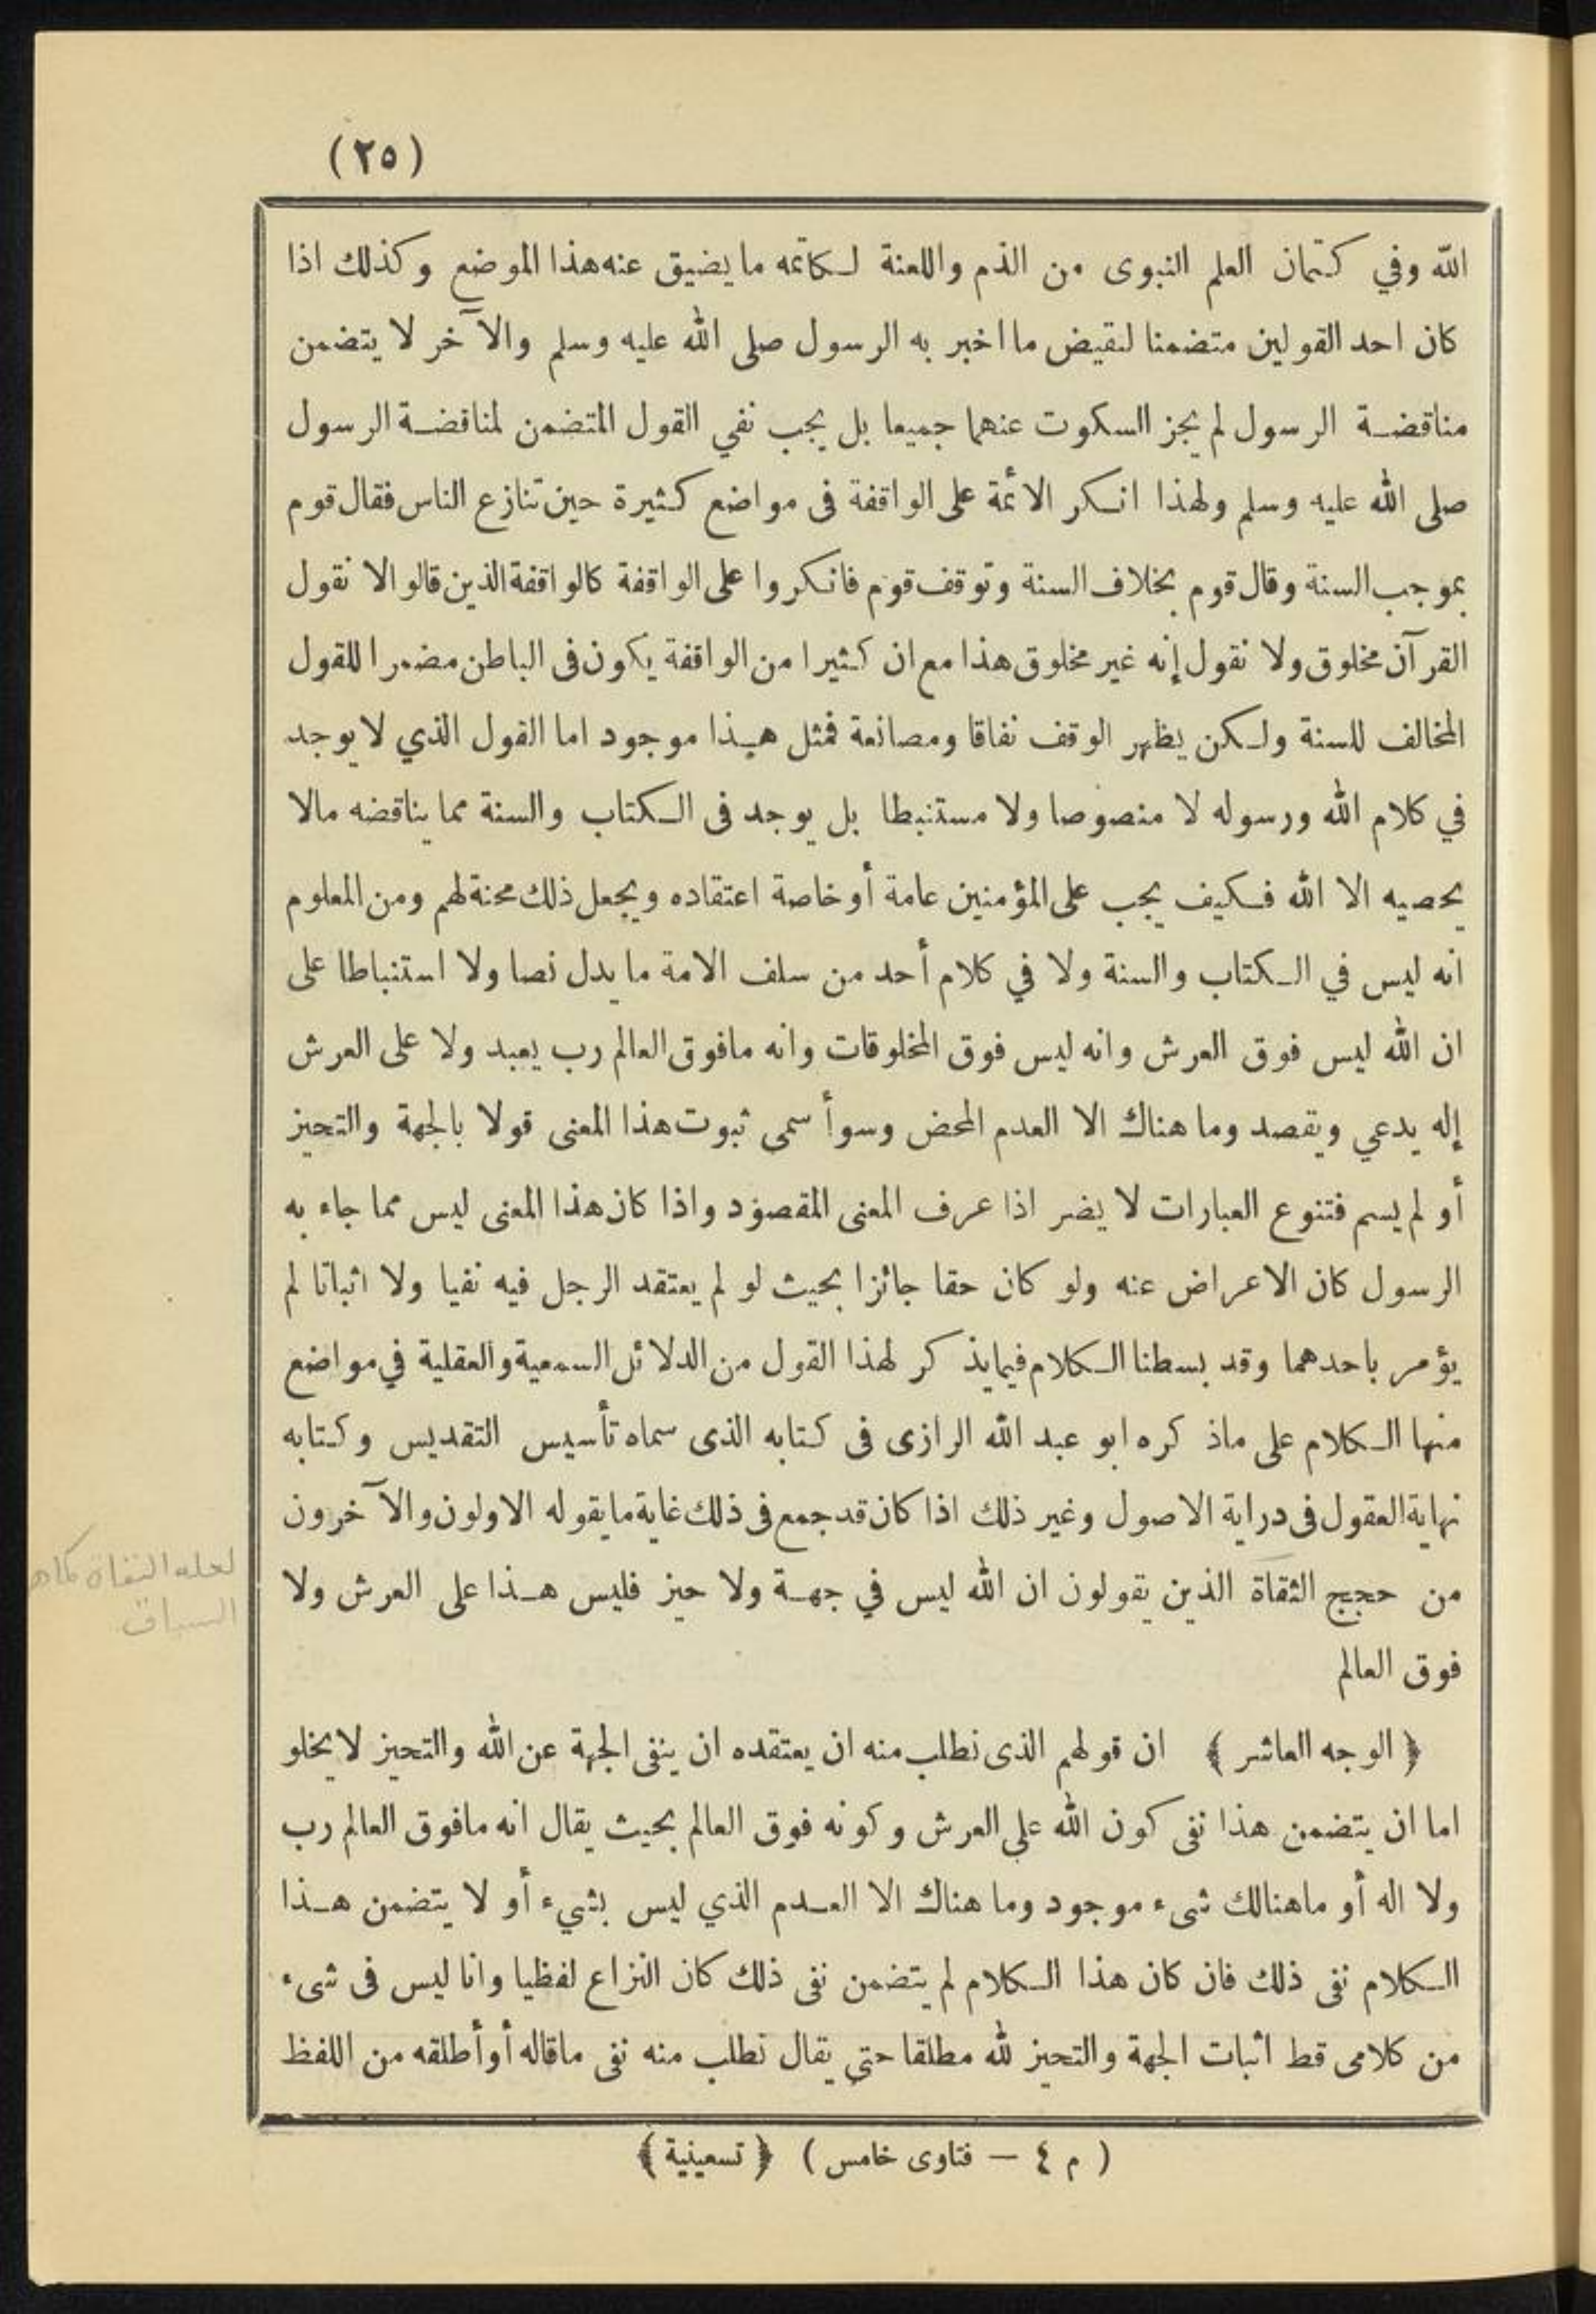 (٢٥)
الله وفي كتمان العلم النبوى من الذم واللعنة لكاتمه ما يضيق عنه هذا الموضع وكذلك اذا
كان احد القولين متضمنا لنقيض ما اخبر به الرسول صلى الله عليه وسلم والآخر لا يتضمن
مناقضة الرسول لم يجز السكوت عنهما جميعا بل يجب نفي القول المتضمن لمناقضة الرسول
صلى الله عليه وسلم ولهذا انكر الائمة على الواقفة فى مواضع كثيرة حين تنازع الناس فقال قوم
بموجب السنة وقال قوم بخلاف السنة وتوقف قوم فانكروا على الواقفة كالواقفة الذين قالوا لا نقول
القرآن مخلوق ولا نقول إنه غير مخلوق هذا مع ان كثيرا من الواقفة يكون فى الباطن مضمرا للقول
المخالف للسنة ولكن يظهر الوقف نفاقا ومصانعة فمثل هذا موجود اما القول الذي لا يوجد
في كلام الله ورسوله لا منصوصا ولا مستنبطا بل يوجد فى الكتاب والسنة مما يناقضه مالا
يحصيه الا الله فكيف يجب على المؤمنين عامة أو خاصة اعتقاده ويجعل ذلك محنة لهم ومن المعلوم
انه ليس في الكتاب والسنة ولا في كلام أحد من سلف الامة ما يدل نصا ولا استنباطا على
ان الله ليس فوق العرش وانه ليس فوق المخلوقات وانه مافوق العالم رب يعبد ولا على العرش
إله يدعي ويقصد وما هناك الا العدم المحض وسوأ سمى ثبوت هذا المعنى قولا بالجهة والتحيز
أو لم يسم فتنوع العبارات لا يضر اذا عرف المعنى المقصود واذا كان هذا المعنى ليس مما جاء به
الرسول كان الاعراض عنه ولو كان حقا جائزا بحيث لو لم يعتقد الرجل فيه نفيا ولا اثباتا لم
يؤمر باحدهما وقد بسطنا الكلام فيما يذكر لهذا القول من الدلائل السمعية والعقلية في مواضع
منها الكلام على ماذكره ابو عبد الله الرازى فى كتابه الذى سماه تأسيس التقديس وكتابه
نهاية العقول فى دراية الاصول وغير ذلك اذا كان قد جمع فى ذلك غاية ما يقوله الاولون والآخرون
من حجج الثقاة الذين يقولون ان الله ليس في جهة ولا حيز فليس هذا على العرش ولا
فوق العالم
لعله النفاة كما هو
السياق
﴿ الوجه العاشر ﴾ ان قولهم الذى نطلب منه ان يعتقده ان ينفى الجهة عن الله والتحيز لا يخلو
اما ان يتضمن هذا نفى كون الله على العرش وكونه فوق العالم بحيث يقال انه مافوق العالم رب
ولا اله أو ماهنالك شىء موجود وما هناك الا العدم الذي ليس بشيء أو لا يتضمن هذا
الكلام نفى ذلك فان كان هذا الكلام لم يتضمن نفى ذلك كان النزاع لفظيا وانا ليس فى شىء
من كلامى قط اثبات الجهة والتحيز لله مطلقا حتى يقال نطلب منه نفى ماقاله أو أطلقه من اللفظ
( م ٤ — فتاوى خامس ) ﴿ تسعينية ﴾